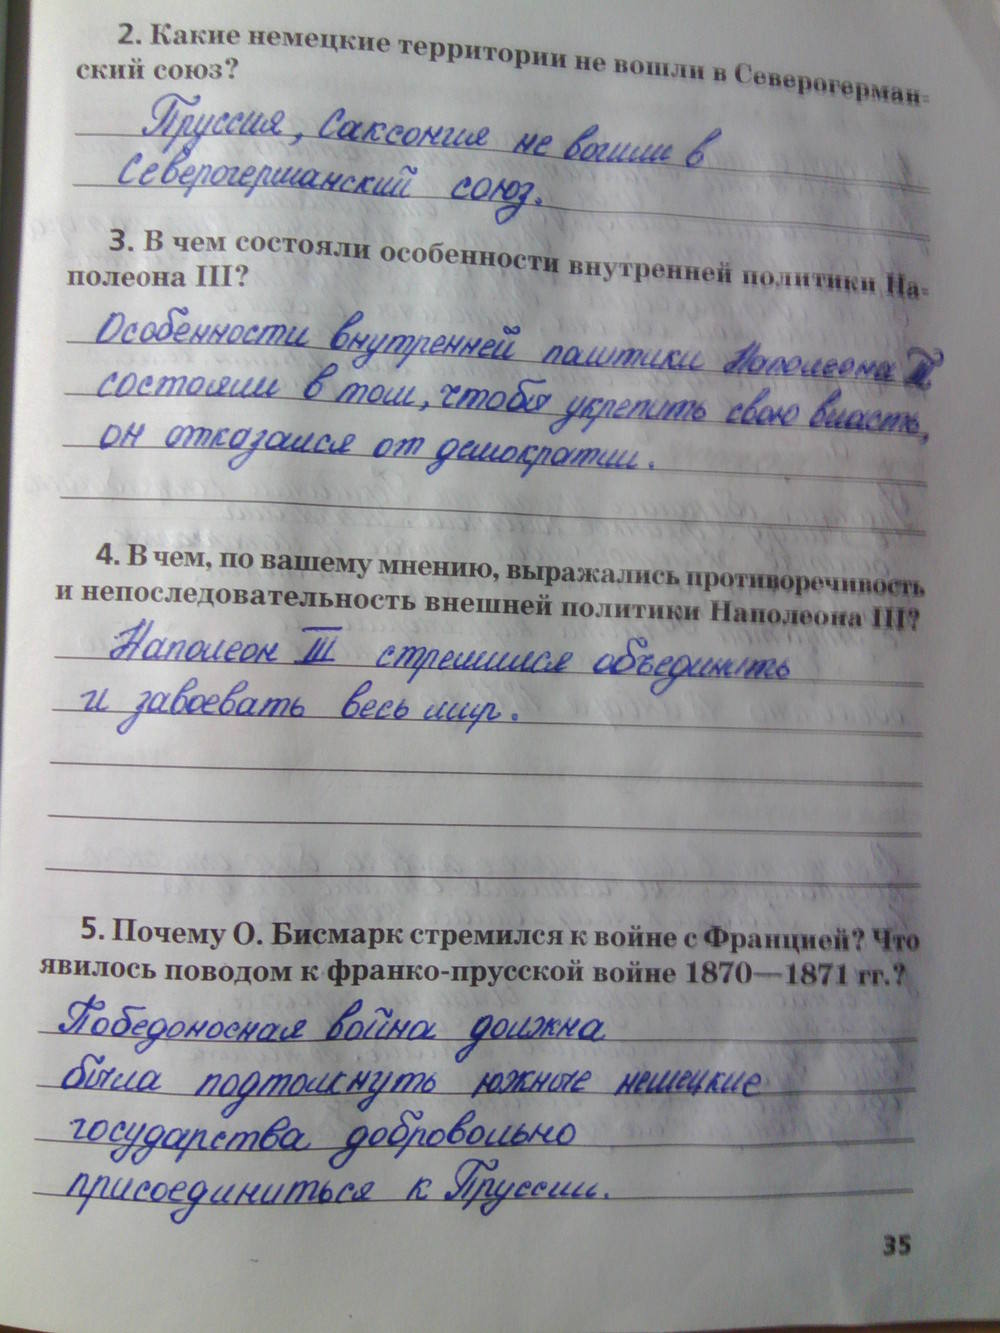 2. Какие немецкие территории не вошли в Северогерман-
ский союз?
Пруссия, Саксония не вошли в
Северогерманский союз.
3. В чем состояли особенности внутренней политики На-
полеона III?
Особенности внутренней политики Наполеона III
состояли в том, чтобы укрепить свою власть,
он отказался от демократии.
4. В чем, по вашему мнению, выражались противоречивость
и непоследовательность внешней политики Наполеона III?
Наполеон III стремился объединить
и завоевать весь мир.
5. Почему О. Бисмарк стремился к войне с Францией? Что
явилось поводом к франко-прусской войне 1870—1871 гг.?
Победоносная война должна
была подтолкнуть южные немецкие
государства добровольно
присоединиться к Пруссии.
35